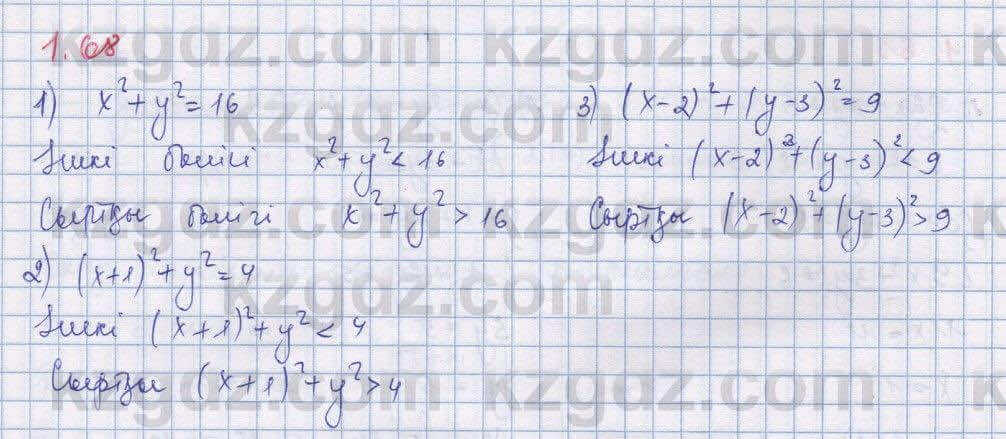 1.68
1) x²+y²=16
Ішкі бөлігі x²+y²<16
Сыртқы бөлігі x²+y²>16
2) (x+1)²+y²=4
Ішкі (x+1)²+y²<4
Сыртқы (x+1)²+y²>4
3) (x-2)²+(y-3)²=9
Ішкі (x-2)²+(y-3)²<9
Сыртқы (x-2)²+(y-3)²>9
kzgdz.com kzgdz.com
kzgdz.com
kzgdz.com kzgdz.com
kzgdz.com
kzgdz.com kzgdz.com